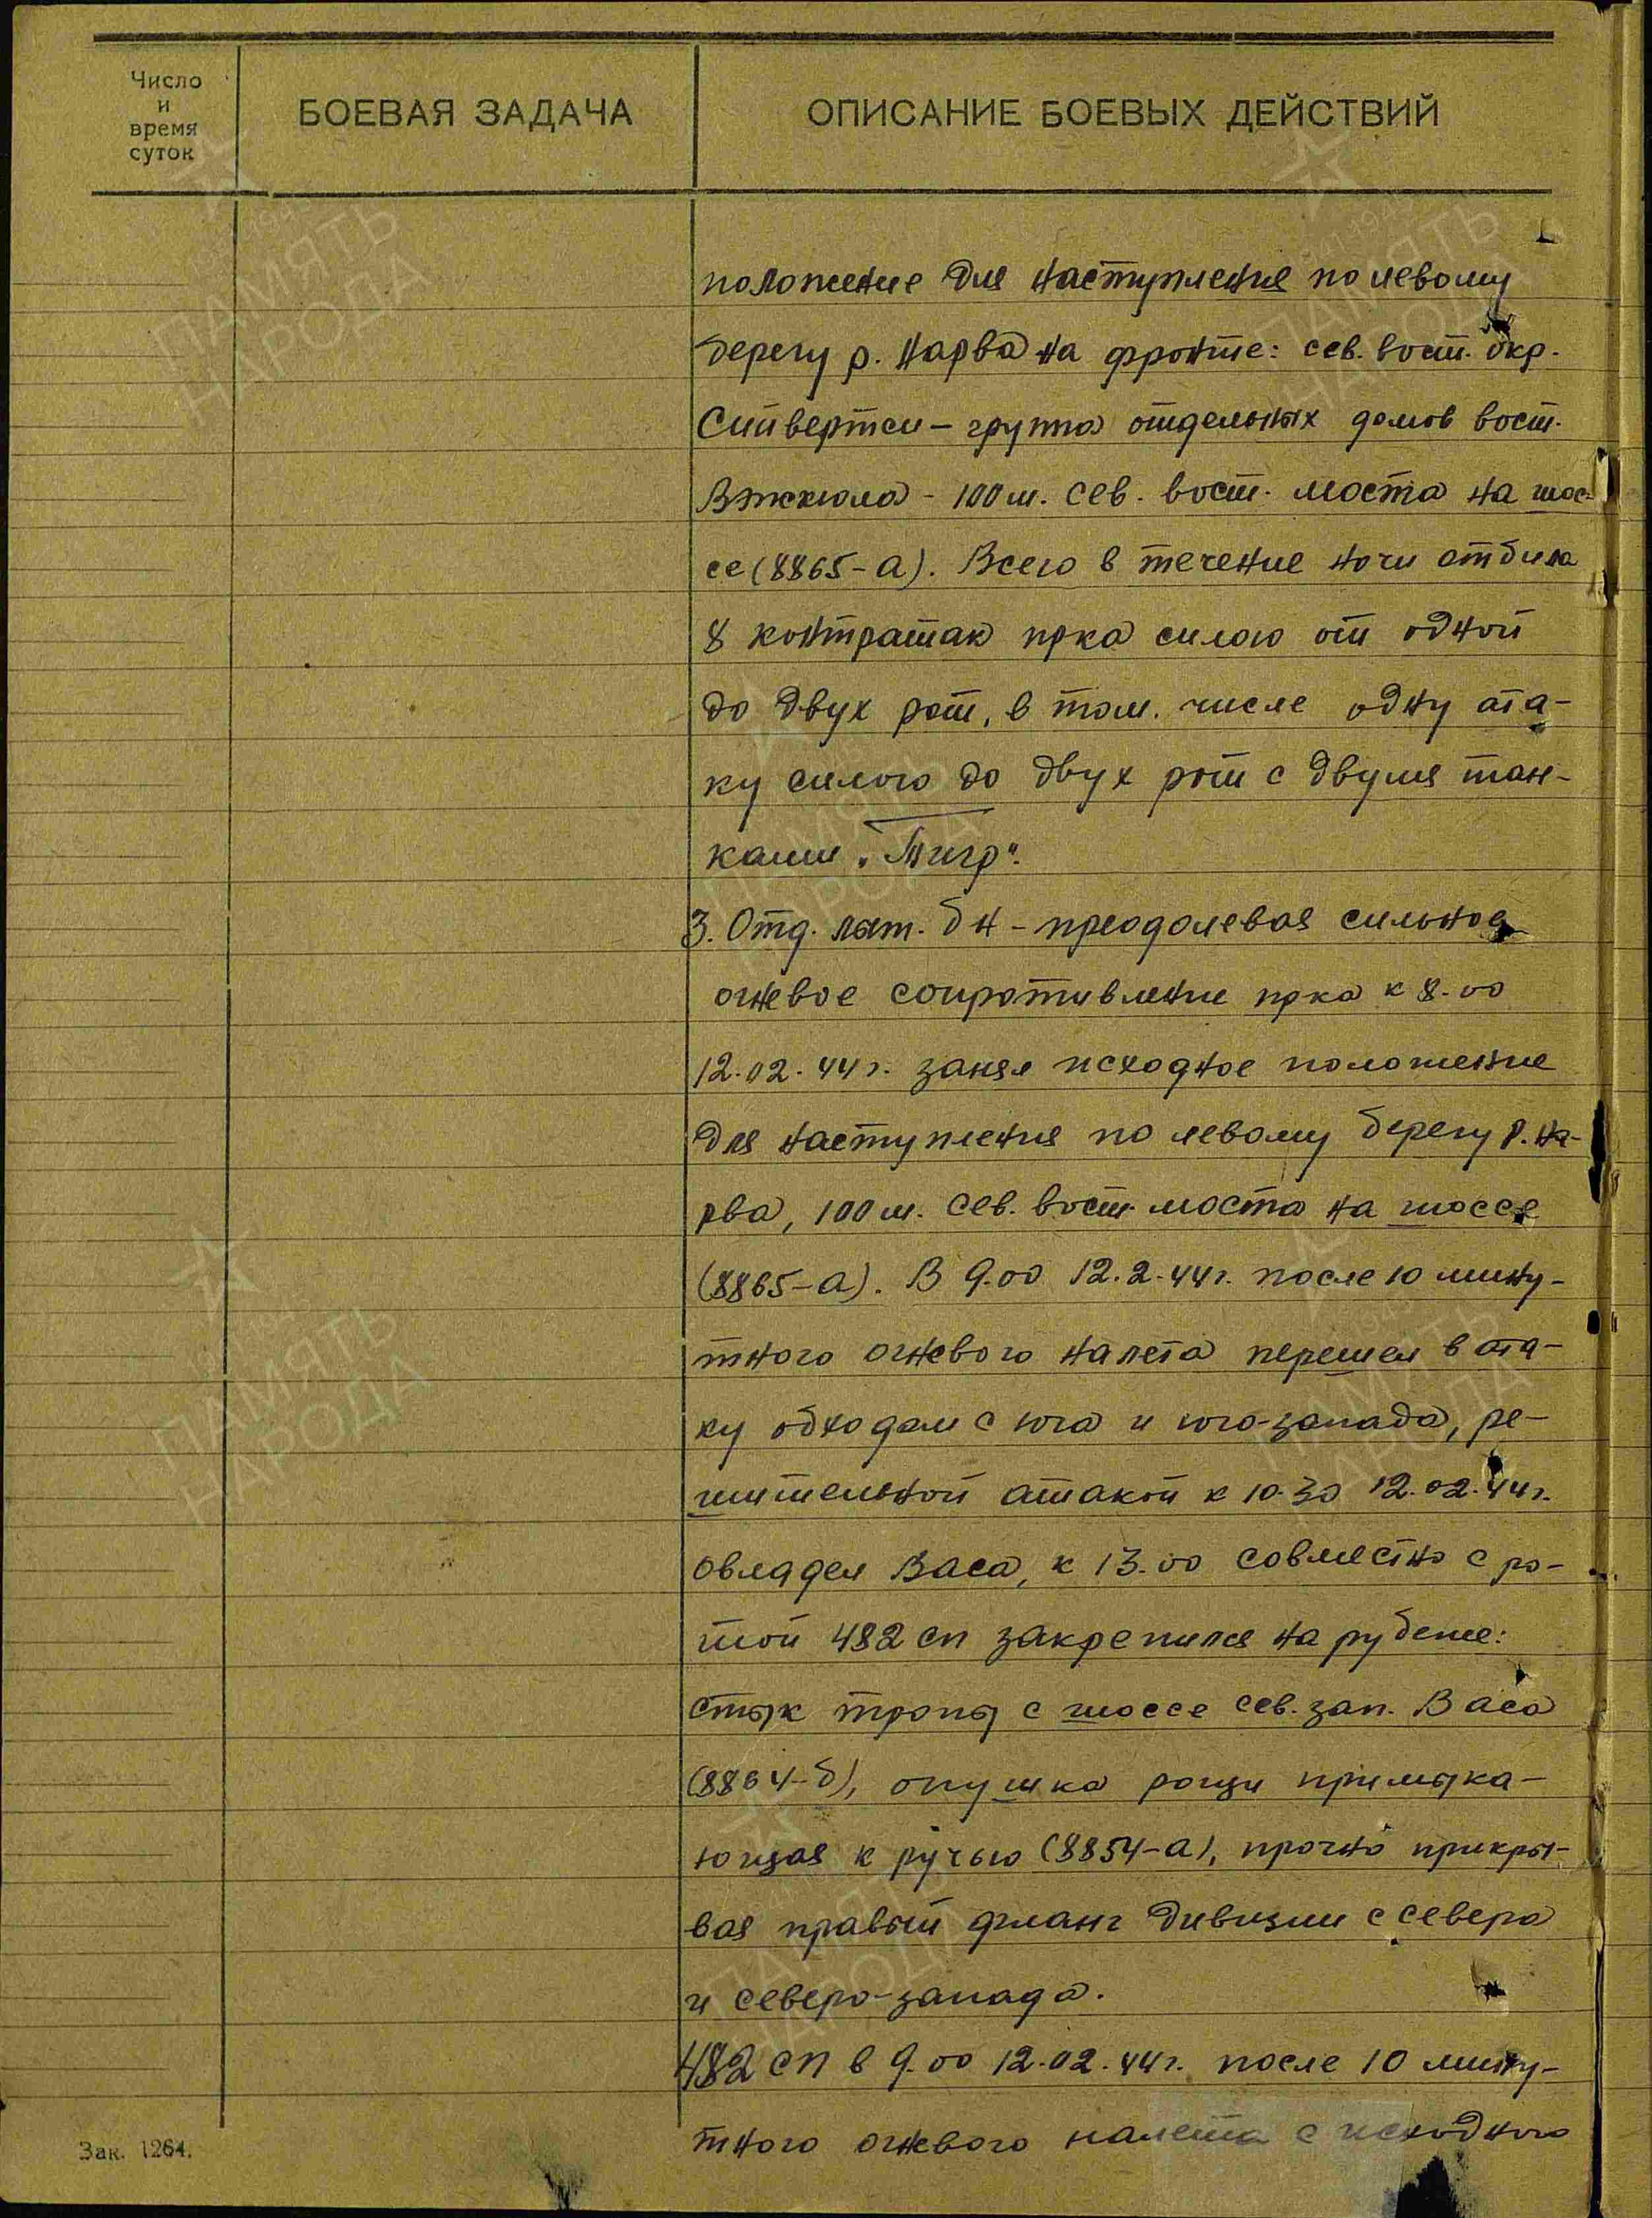 Число
и
время
суток
БОЕВАЯ ЗАДАЧА
ОПИСАНИЕ БОЕВЫХ ДЕЙСТВИЙ
положение для наступления по левому
берегу р. Нарва на фронте: сев. вост. окр.
Сийвертси – группа отдельных домов вост.
Вэжкюла - 100 м. сев. вост. моста на шос-
се (8865-а). Всего в течение ночи отбила
8 контратак пр-ка силою от одной
до двух рот, в том. числе одну ата-
ку силою до двух рот с двумя тан-
ками „Тигр".
3. Отд. лыт. бн - преодолевая сильное
огневое сопротивление пр-ка к 8.00
12.02.44 г. занял исходное положение
для наступления по левому берегу р. На-
рва, 100 м. сев. вост. моста на шоссе
(8865-а). В 9.00 12.2.44 г. после 10 мину-
тного огневого налета перешел в ата-
ку обходом с юга и юго-запада, ре-
шительной атакой к 10.30 12.02.44 г.
овладел Васа, к 13.00 совместно с ро-
той 482 сп закрепился на рубеже:
стык тропы с шоссе сев. зап. Васа
(8864-б), опушка рощи примыка-
ющая к ручью (8854-а), прочно прикры-
вая правый фланг дивизии с севера
и северо-запада.
482 сп в 9.00 12.02.44 г. после 10 мину-
тного огневого налета с исходного
Зак. 1264.
ПАМЯТЬ
НАРОДА